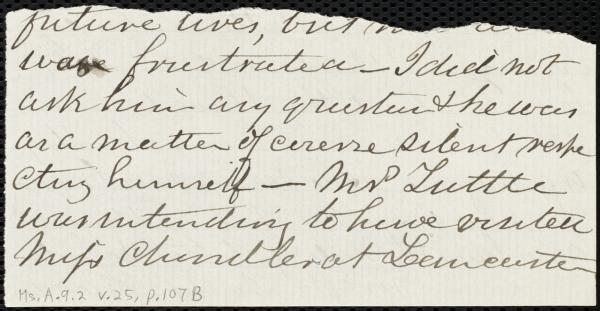 future lives, but
was frustrated — I did not
ask him any question & he was
as a matter of course silent respe
cting himself — Mrs Tuttle
was intending to have visited
Miss Chandler at Lancaster
Ms. A. 9. 2 v. 25, p. 107 B